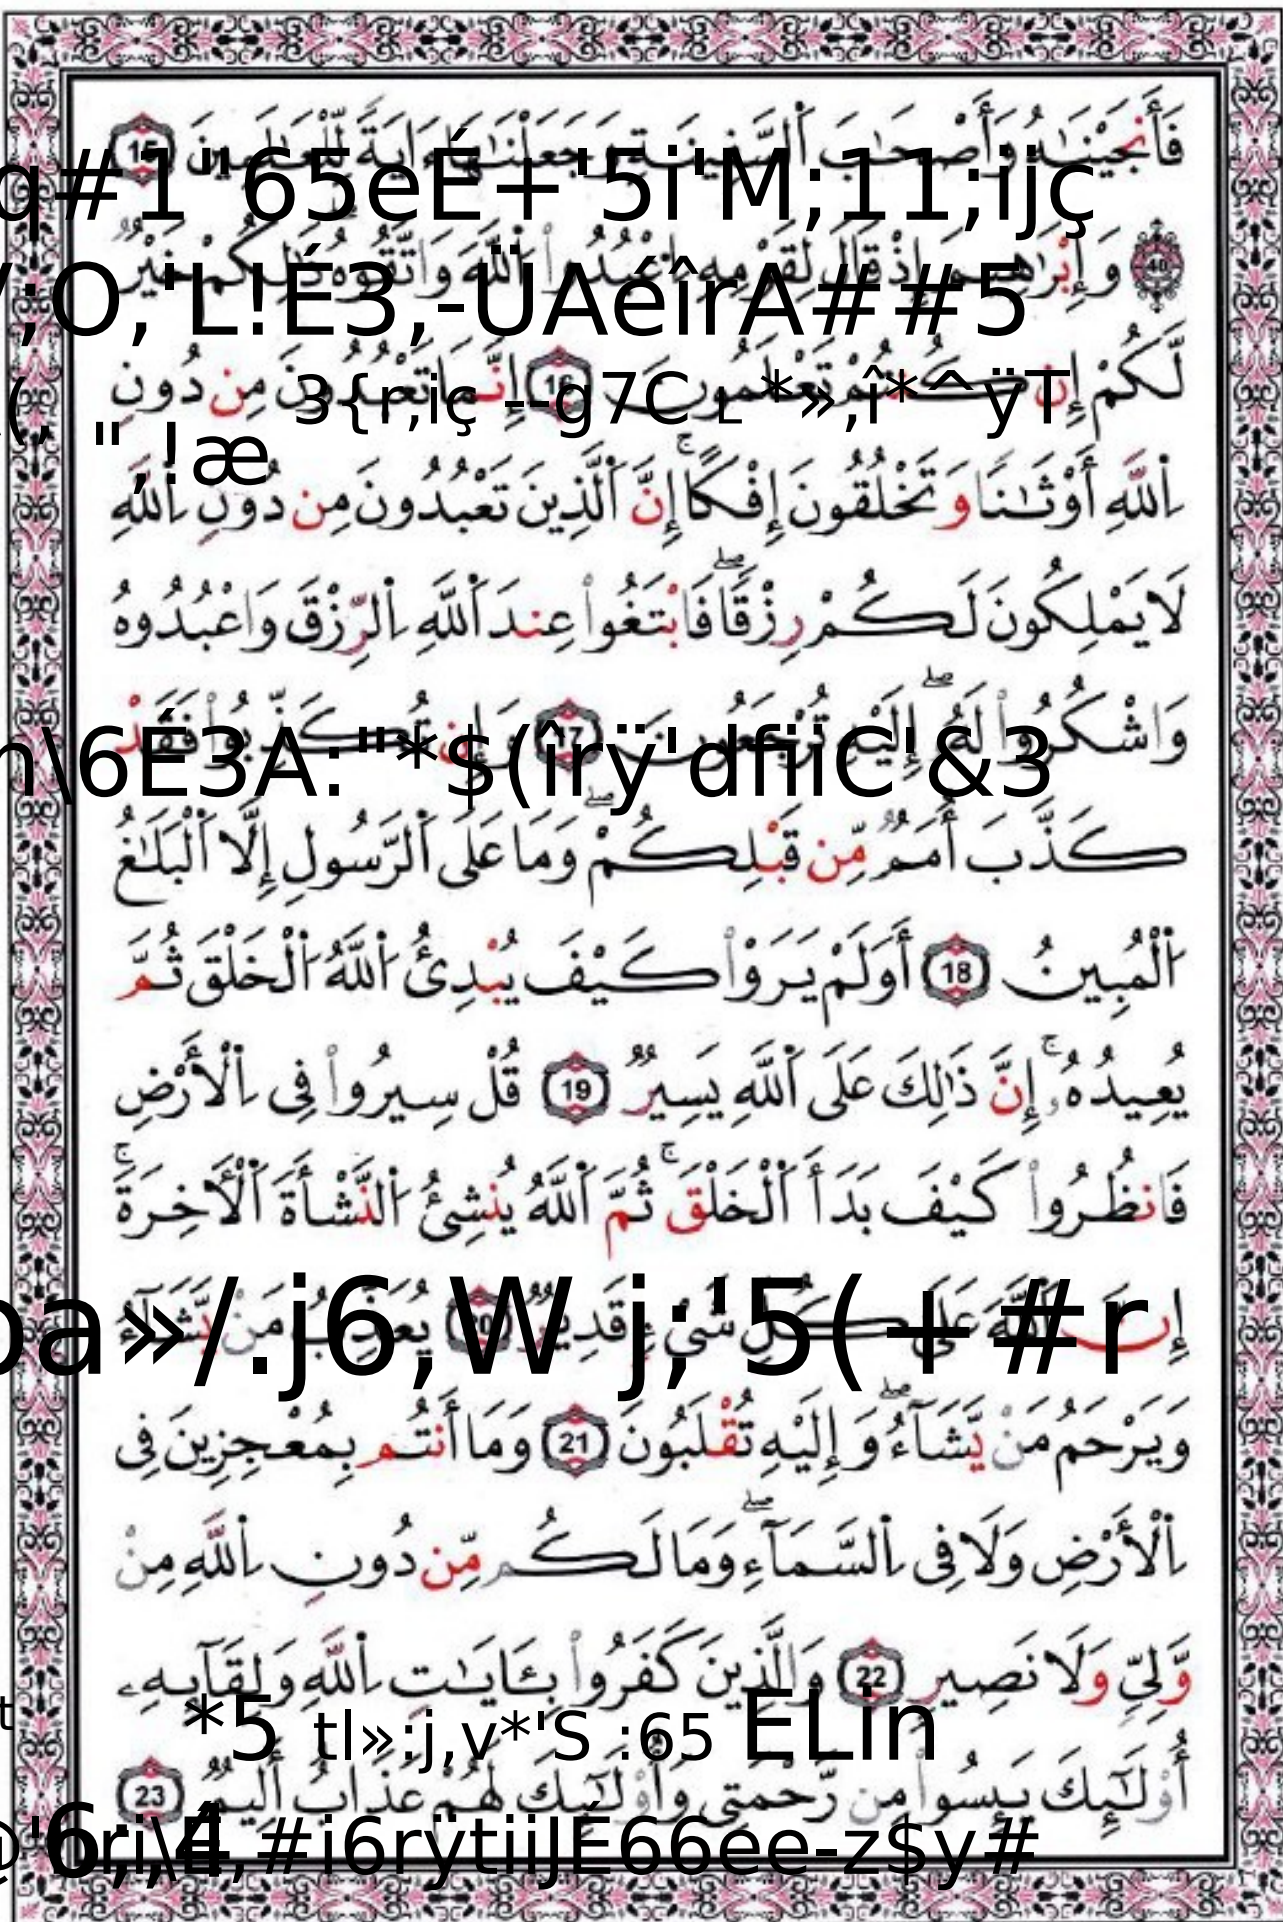 فَأَنجَيْنَٰهُ وَأَصْحَٰبَ اَ۬لسَّفِينَةِ وَجَعَلْنَٰهَآ ءَايَةٗ لِّلْعَٰلَمِينَ 15
q#1"65eÉ+'5i'M;11;ijç
وَإِبْرَٰهِيمَ إِذْ قَالَ لِقَوْمِهِ اِ۟عْبُدُواْ اُ۬للَّهَ وَاتَّقُوهُ ذَٰلِكُمْ خَيْرٞ
;O,'L!É3,-ÜAéîrA##5
لَّكُمْ إِن كُنتُمْ تَعْلَمُونَ 16 إِنَّمَا تَعْبُدُونَ مِن دُونِ
3{r,iç --g7C L *»,î*^ÿT
",!æ
اِ۬للَّهِ أَوْثَٰنٗا وَتَخْلُقُونَ إِفْكًا إِنَّ اَ۬لَّذِينَ تَعْبُدُونَ مِن دُونِ اِ۬للَّهِ
لَا يَمْلِكُونَ لَكُمْ رِزْقٗا فَابْتَغُواْ عِندَ اَ۬للَّهِ اِ۬لرِّزْقَ وَاعْبُدُوهُ
وَاشْكُرُواْ لَهُۥ إِلَيْهِ تُرْجَعُونَ 17 وَإِن تُكَذِّبُواْ فَقَدْ
\6É3A:"*$(îrÿ'dfiiC'&3
كَذَّبَ أُمَمٞ مِّن قَبْلِكُمْ وَمَا عَلَى اَ۬لرَّسُولِ إِلَّا اَ۬لْبَلَٰغُ
اُ۬لْمُبِينُ 18 أَوَلَمْ يَرَوْاْ كَيْفَ يُبْدِئُ اُ۬للَّهُ اُ۬لْخَلْقَ ثُمَّ
يُعِيدُهُۥ إِنَّ ذَٰلِكَ عَلَى اَ۬للَّهِ يَسِيرٞ 19 قُلْ سِيرُواْ فِي اِ۬لْأَرْضِ
فَانظُرُواْ كَيْفَ بَدَأَ اَ۬لْخَلْقَ ثُمَّ اَ۬للَّهُ يُنشِئُ اُ۬لنَّشْأَةَ اَ۬لْأٓخِرَةَ
إِنَّ اَ۬للَّهَ عَلَىٰ كُلِّ شَيْءٖ قَدِيرٞ 20 يُعَذِّبُ مَنْ يَّشَآءُ
a»/.j6,W j;'5(+#r
وَيَرْحَمُ مَنْ يَّشَآءُ وَإِلَيْهِ تُقْلَبُونَ 21 وَمَا أَنتُم بِمُعْجِزِينَ فِي
اِ۬لْأَرْضِ وَلَا فِي اِ۬لسَّمَآءِ وَمَا لَكُم مِّن دُونِ اِ۬للَّهِ مِنْ
وَّلِيّٖ وَلَا نَصِيرٖ 22 وَالَّذِينَ كَفَرُواْ بِـَٔايَٰتِ اِ۬للَّهِ وَلِقَآئِهِۦ
*5 tl»:j,v*'S :65 ELin
أُوْلَٰٓئِكَ يَئِسُواْ مِن رَّحْمَتِي وَأُوْلَٰٓئِكَ لَهُمْ عَذَابٌ أَلِيمٞ 23
,#i6rÿtiiJÉ66ee-z$y#